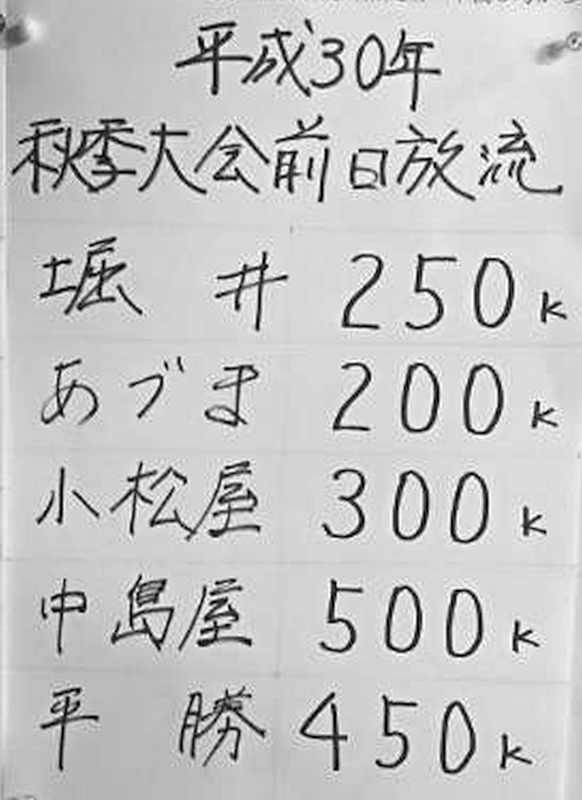 平成30年
秋季大会前日放流
堀井 250K
あづま 200K
小松屋 300K
中島屋 500K
平勝 450K